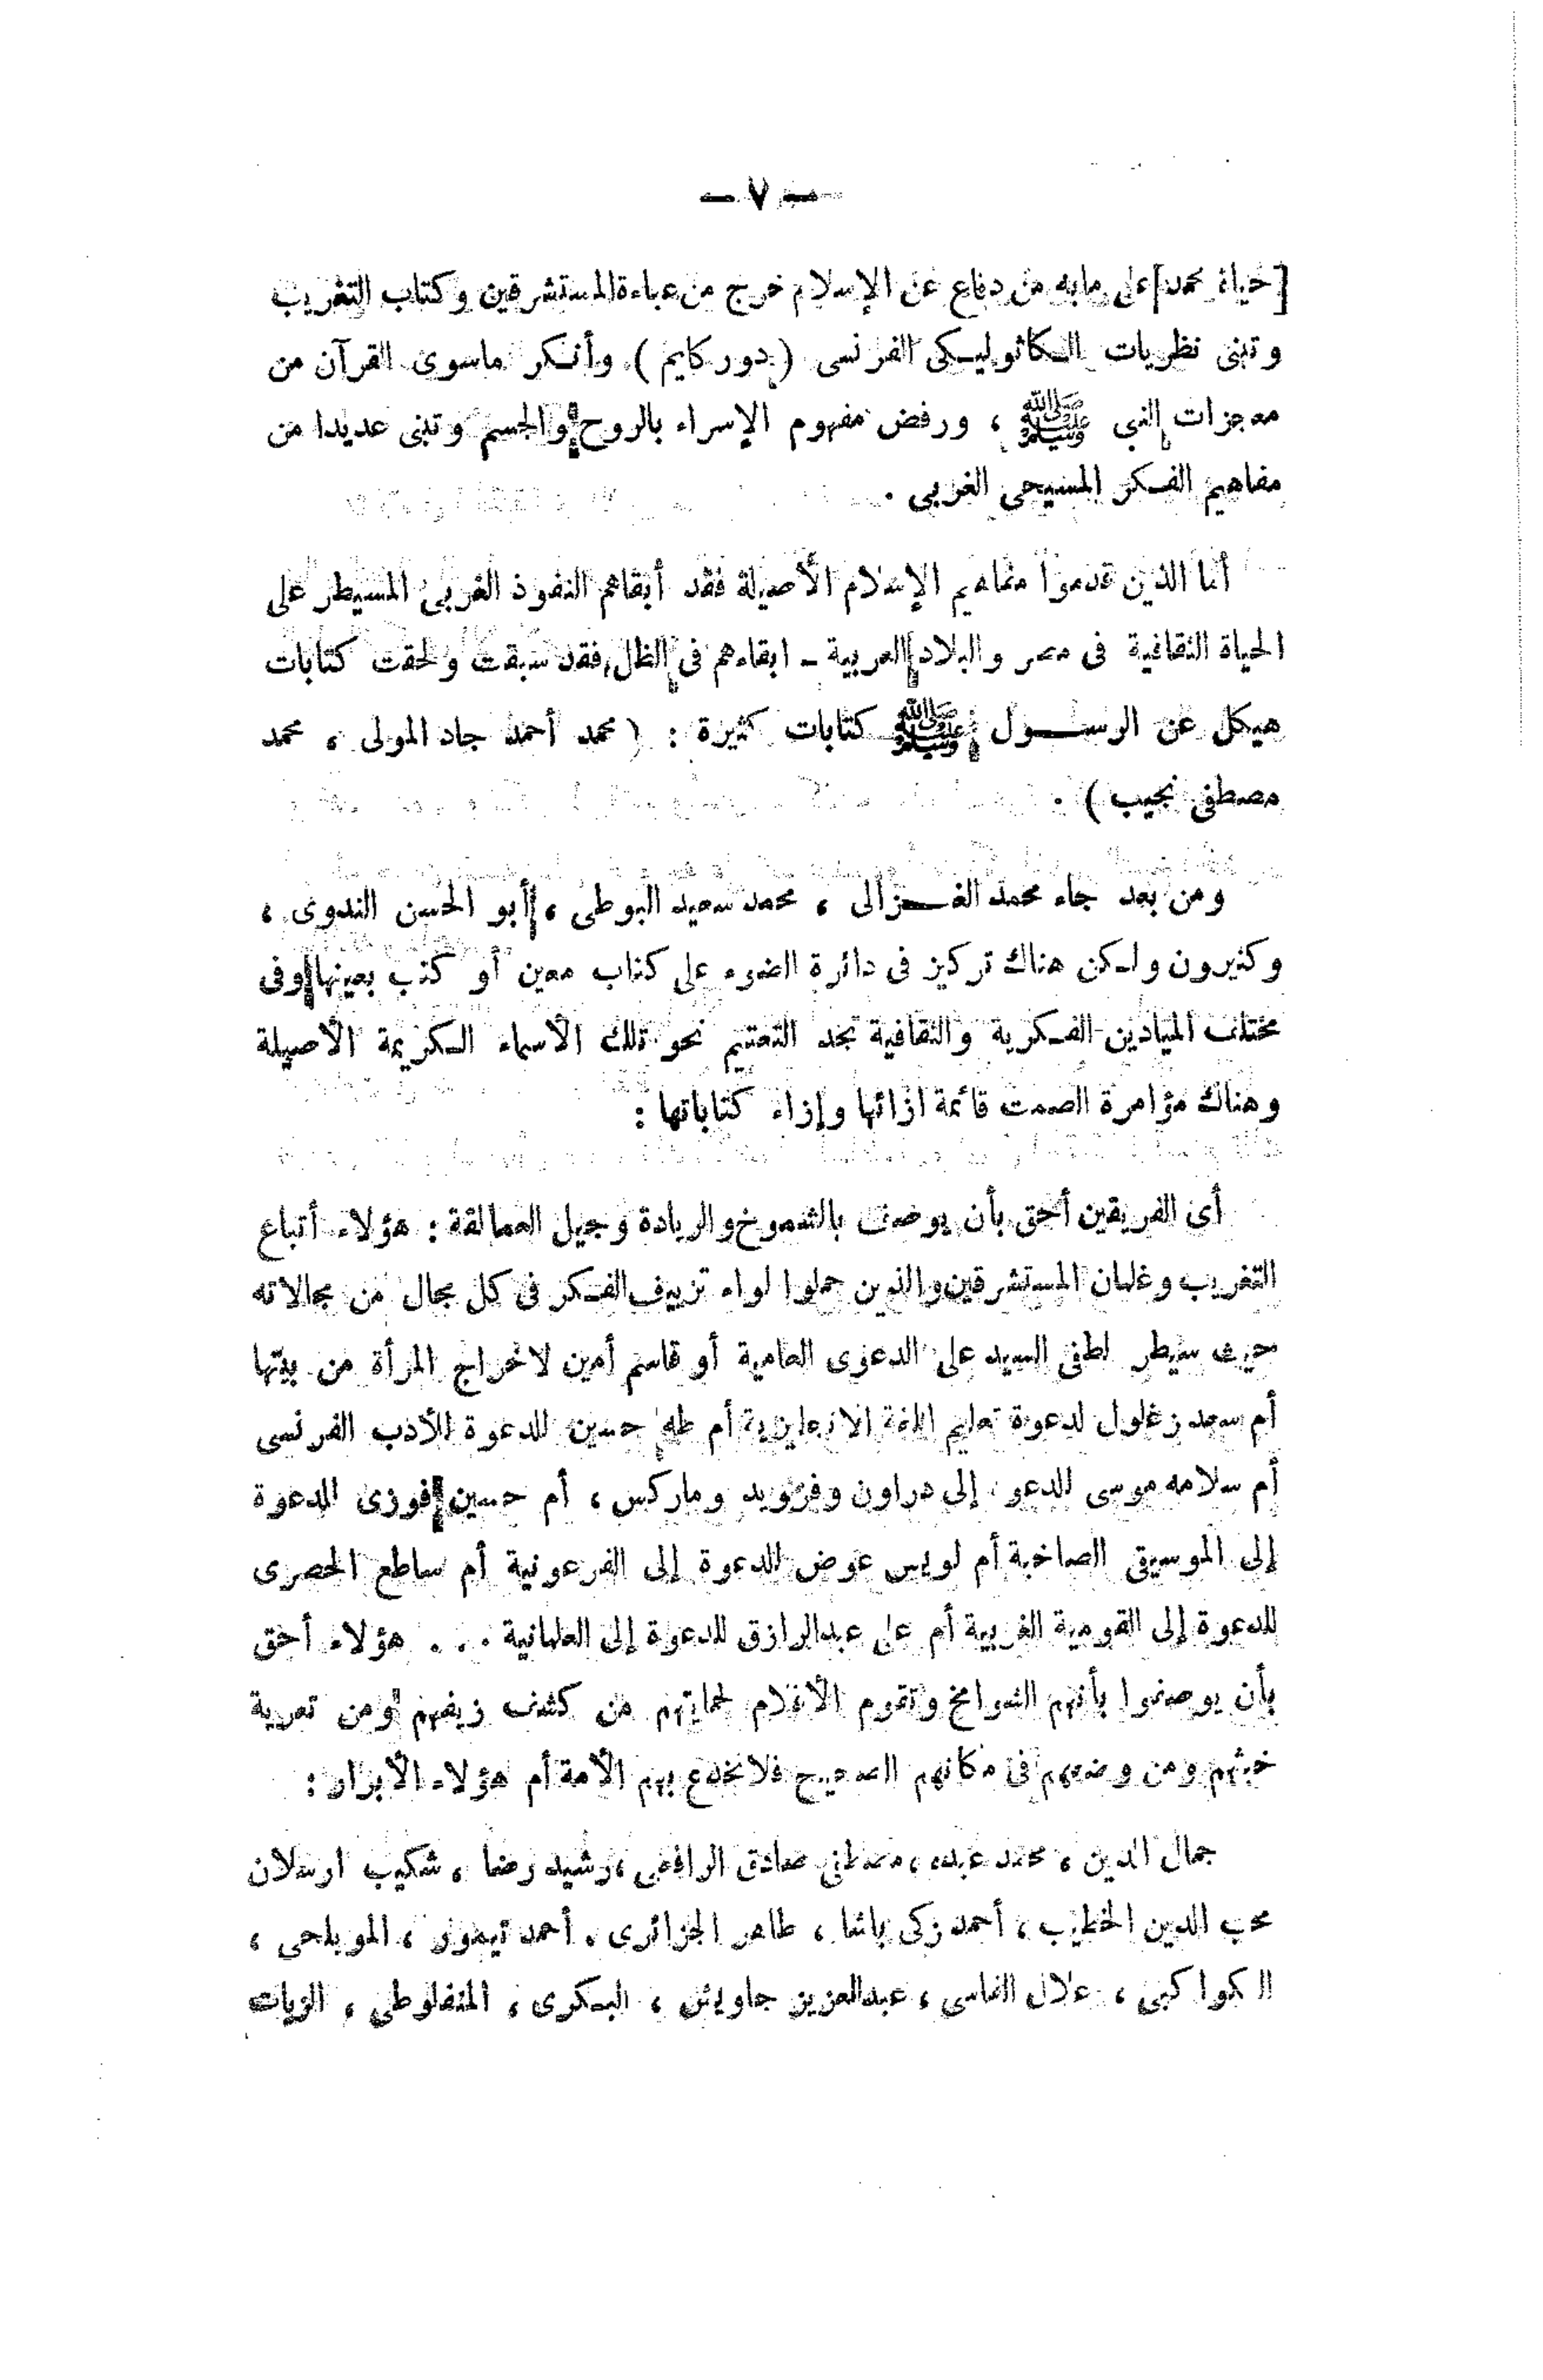 — ٧ —
[حياة محمد] على مابه من دفاع عن الإسلام خرج من عباءة المستشرقين وكتاب التغريب
وتبنى نظريات الكاثوليكى الفرنسى (دوركايم) وأنكر ماسوى القرآن من
معجزات النبى ﷺ ، ورفض مفهوم الإسراء بالروح والجسم وتبنى عديدا من
مفاهيم الفكر المسيحى الغربى .
أما الذين قدموا مفاهيم الإسلام الأصيلة فقد أبقاهم النفوذ الغربى المسيطر على
الحياة الثقافية فى مصر والبلاد العربية - ابقاءهم فى الظل، فقد سبقت ولحقت كتابات
هيكل عن الرسول ﷺ كتابات كثيرة : (محمد أحمد جاد المولى ، محمد
مصطفى نجيب) .
ومن بعد جاء محمد الغزالى ، محمد سعيد البوطى ، أبو الحسن الندوى ،
وكثيرون ولكن هناك تركيز فى دائرة الضوء على كتاب معين أو كتب بعينها وفى
مختلف الميادين الفكرية والثقافية نجد التعتيم نحو تلك الأسماء الكريمة الأصيلة
وهناك مؤامرة الصمت قائمة ازائها وإزاء كتاباتها :
أى الفريقين أحق بأن يوصف بالشموخ والريادة وجيل العمالقة : هؤلاء أتباع
التغريب وغلمان المستشرقين والذين حملوا لواء تزييف الفكر فى كل مجال من مجالاته
حيث سيطر لطفى السيد على الدعوى العامية أو قاسم أمين لاخراج المرأة من بيتها
أم سعد زغلول لدعوة تعليم اللغة الانجليزية أم طه حسين للدعوة للأدب الفرنسى
أم سلامه موسى للدعو إلى دراون وفرويد وماركس ، أم حسين فوزى للدعوة
إلى الموسيقى الصاخبة أم لويس عوض للدعوة إلى الفرعونية أم ساطع الحصرى
للدعوة إلى القومية الغربية أم على عبدالرازق للدعوة إلى العلمانية . . . هؤلاء أحق
بأن يوصفوا بأنهم الشوامخ وتقوم الأقلام لحمايتهم من كشف زيفهم ومن تعرية
خبثهم ومن وضعهم فى مكانهم الصحيح فلا تخدع بهم الأمة أم هؤلاء الأبرار :
جمال الدين ، محمد عبده ، مصطفى صادق الرافعى ، رشيد رضا ، شكيب ارسلان
محب الدين الخطيب ، أحمد زكى باشا ، طاهر الجزائرى ، أحمد تيمور ، المويلحى ،
الكواكبى ، علال الفاسى ، عبدالعزيز جاويش ، البكرى ، المنفلوطى ، الزيات